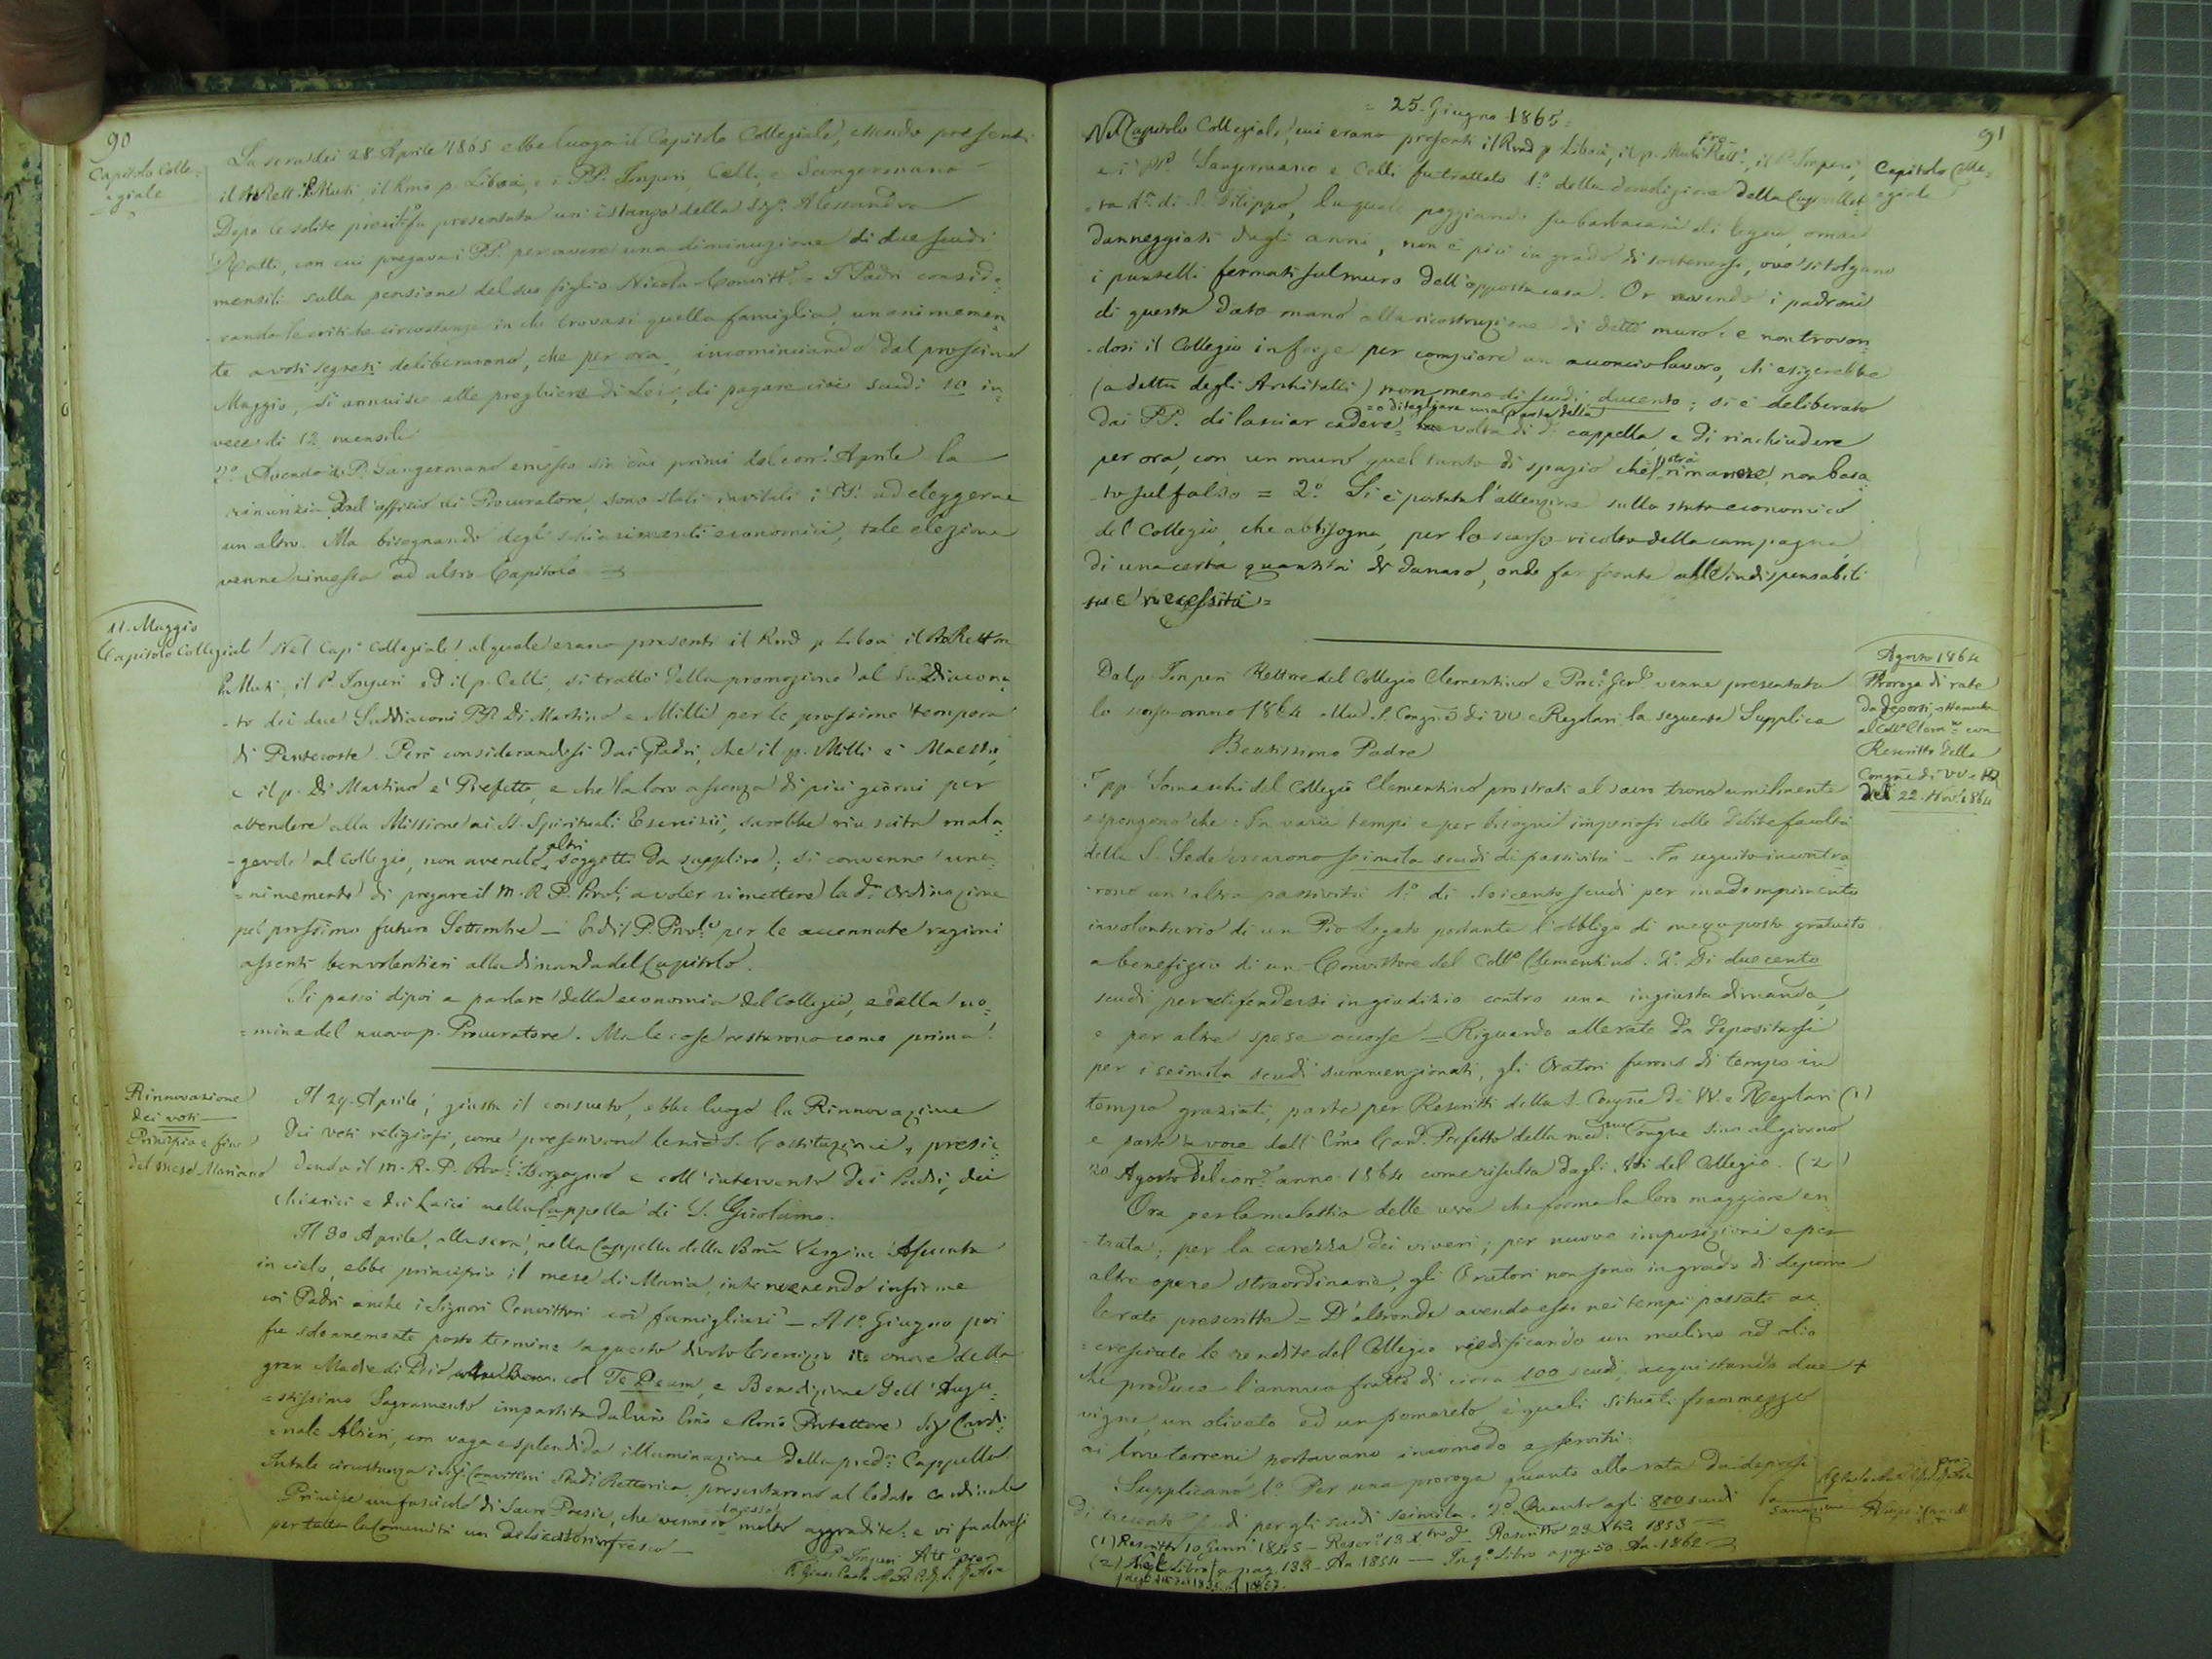 90
Capitolo Colle=
=giale
La sera dei 28 Aprile 1865 ebbe luogo il Capitolo Collegiale, essendo presenti
il ProRett. P. Muti, il Rmo p. Libois, e i PP. Imperi, Celli, e Sangermano
Dopo le solite preci 1º fu presentata un'istanza della Sigª Alessandra
Ratti, con cui pregava i PP. per avere una diminuzione di due scudi
mensili sulla pensione del suo figlio Nicola Convittº = I Padri conside=
rando le critiche circostanze in che trovasi quella famiglia, unanimemen=
te a voti segreti deliberarono, che per ora, incominciando dal prossimo
Maggio, si annuisce alle preghiere di Lei, di pagare cioè scudi 10 in=
vece di 12 mensili
2º Avendo il P. Sangermano emesso sin dai primi del corr. Aprile la
rinunzia dall'officio di Procuratore, sono stati invitati i PP. ad eleggerne
un altro. Ma bisognando degli schiarimenti economici, tale elezione
venne rimessa ad altro Capitolo
11. Maggio
Capitolo Collegiale
Nel Capº Collegiale, al quale erano presenti il Rmo p. Libois il ProRettore
P. Muti, il P. Imperi ed il p. Celli, si trattò della promozione al Suddiacona=
-to dei due Suddiaconi PP. Di Martino e Milli per le prossime tempora
di Pentecoste. Però considerandosi dai Padri, che il p. Milli è Maestro,
e il p. Di Martino è Prefetto, e che la loro assenza di più giorni per
attendere alla Missione ai SS. Spirituali Esercizii, sarebbe riuscita mala=
-gevole al Collegio, non avendo altri soggetti da supplire; si convenne una=
=nimemente di pregare il M. R. P. Provle a voler rimettere la dª Ordinazione
pel prossimo futuro Settembre — Ed il P. Provle per le accennate ragioni
assentì ben volentieri alla dimanda del Capitolo.
Si passò dipoi a parlare della economia del Collegio, e della no=
=mina del nuovo p. Procuratore. Ma le cose restarono come prima.
Rinnovazione
dei voti
Principio e fine
del mese Mariano
Il 29. Aprile, giusta il consueto, ebbe luogo la Rinnovazione
dei voti religiosi, come prescrivono le nostre S. Costituzioni, presie=
dendo il M. R. P. Provle Borgogno e coll'intervento dei Padri, dei
chierici e dei Laici nella Cappella di S. Girolamo.
Il 30 Aprile, alla sera, nella Cappella della Bma Vergine Assunta
in cielo, ebbe principio il mese di Maria, intervenendo insieme
coi Padri anche i Signori Convittori coi famigliari — Al 1º. Giugno poi
fu solennemente posto termine a questo divoto Esercizio in onore della
gran Madre di Dio col Te Deum, e Benedizione dell'Augu=
=stissimo Sagramento impartita dal Emo e Rmo Protettore Sig. Cardi=
=nale Altieri, con vaga e splendida illuminazione della predª Cappella.
In tale circostanza i Sigi Convittori di Rettorica presentarono al lodato Cardinale
Principe un fascicolo di Sacre Poesie, che vennero da esso molto aggradite: e vi fu altresì
per tutta la Comunità un rinfresco —
P. Imperi Attº
P. Gian Carlo Muti
91
= 25. Giugno 1865 =
Capitolo Colle=
=giale
Nel Capitolo Collegiale, cui erano presenti il Rmo p. Libois, il p. Muti Pro-Rettº, il P. Imperi,
e i PP. Sangermano e Celli fu trattato 1º. della demolizione della Cappellet=
=ta dª di S. Filippo, la quale poggiando su barbacani di legno, omai
danneggiati dagli anni, non è più in grado di sostenersi, ove si tolgano
i puntelli fermati sul muro dell'opposta casa. Or avendo i padroni
di questa dato mano alla ricostruzione di detto muro: e non trovan=
-dosi il Collegio in forze per compiere un acconcio lavoro, ch'esigerebbe
(a detta degli Architetti) non meno di scudi ducento; si è deliberato
dai PP. di lasciar cadere = o di tagliare una parte della = volta di dª cappella, e di rinchiudere
per ora, con un muro quel tanto di spazio che potrà rimanere, non basa=
to sul falso = 2º. Si è portata l'attenzione sullo stato economico
del Collegio, che abbisogna, per lo scarso ricolto della campagna,
di una certa quantità di danaro, onde far fronte alle indispensabili
sue necessità =
Agosto 1864
Proroga di rate
da deporsi, ottenuta
al Collº Clemno con
Rescritto della
Congne di VV. e RR
del 22. Nov. 1864
Dal p. Imperi Rettore del Collegio Clementino e Procº Genle venne presentata
lo scorso anno 1864 alla S. Congne di VV. e Regolari la seguente Supplica
Beatissimo Padre
I pp. Somaschi del Collegio Clementino prostrati al sacro trono umilmente
espongono che: In varii tempi e per bisogni imperiosi colle debite facoltà
della S. Sede crearono seimila scudi di passività — In seguito incontra=
-rono un'altra passività 1º. di seicento scudi per inadempimento
involontario di un Pio Legato portante l'obbligo di mezzo posto gratuito
a benefizio di un Convittore del Collº Clementino. 2º. Di duecento
scudi per difendersi in giudizio contro una ingiusta dimanda,
e per altre spese occorse = Riguardo alle rate da depositarsi
per i seimila scudi summenzionati, gli Oratori furono di tempo in
tempo graziati, parte per Rescritti della S. Congne di VV. e Regolari (1)
e parte a voce dall'Emo Card. Prefetto della medma Congne sino al giorno
20 Agosto del corrte anno 1864 come risulta dagli Atti del Collegio. (2)
Ora per la malattia delle uve che forma la loro maggiore en=
trata; per la carezza dei viveri; per nuove imposizioni e per
altre opere straordinarie, gli Oratori non sono in grado di deporre
le rate prescritte = D'altronde avendo essi nei tempi passati ac=
=cresciute le rendite del Collegio riedificando un mulino ad olio
che produce l'annuo frutto di circa 100 scudi, acquistando due +
vigne, un oliveto ed un pomareto, i quali situati frammezzo
ai loro terreni portavano incomodo e servitù:
Supplicano 1º. Per una proroga quanto alla rata da deporsi
di trecento scudi per gli scudi seimila. 2º. Quanto agli 800 scudi
(1) Rescritto 10 Genn. 1845 — Rescrº 13 Xbre dº Rescritto 23 Xbre 1853 —
(2) Nel Libro a pag. 133 — An. 1854 — In qº Libro a pag. 50. An. 1862 —